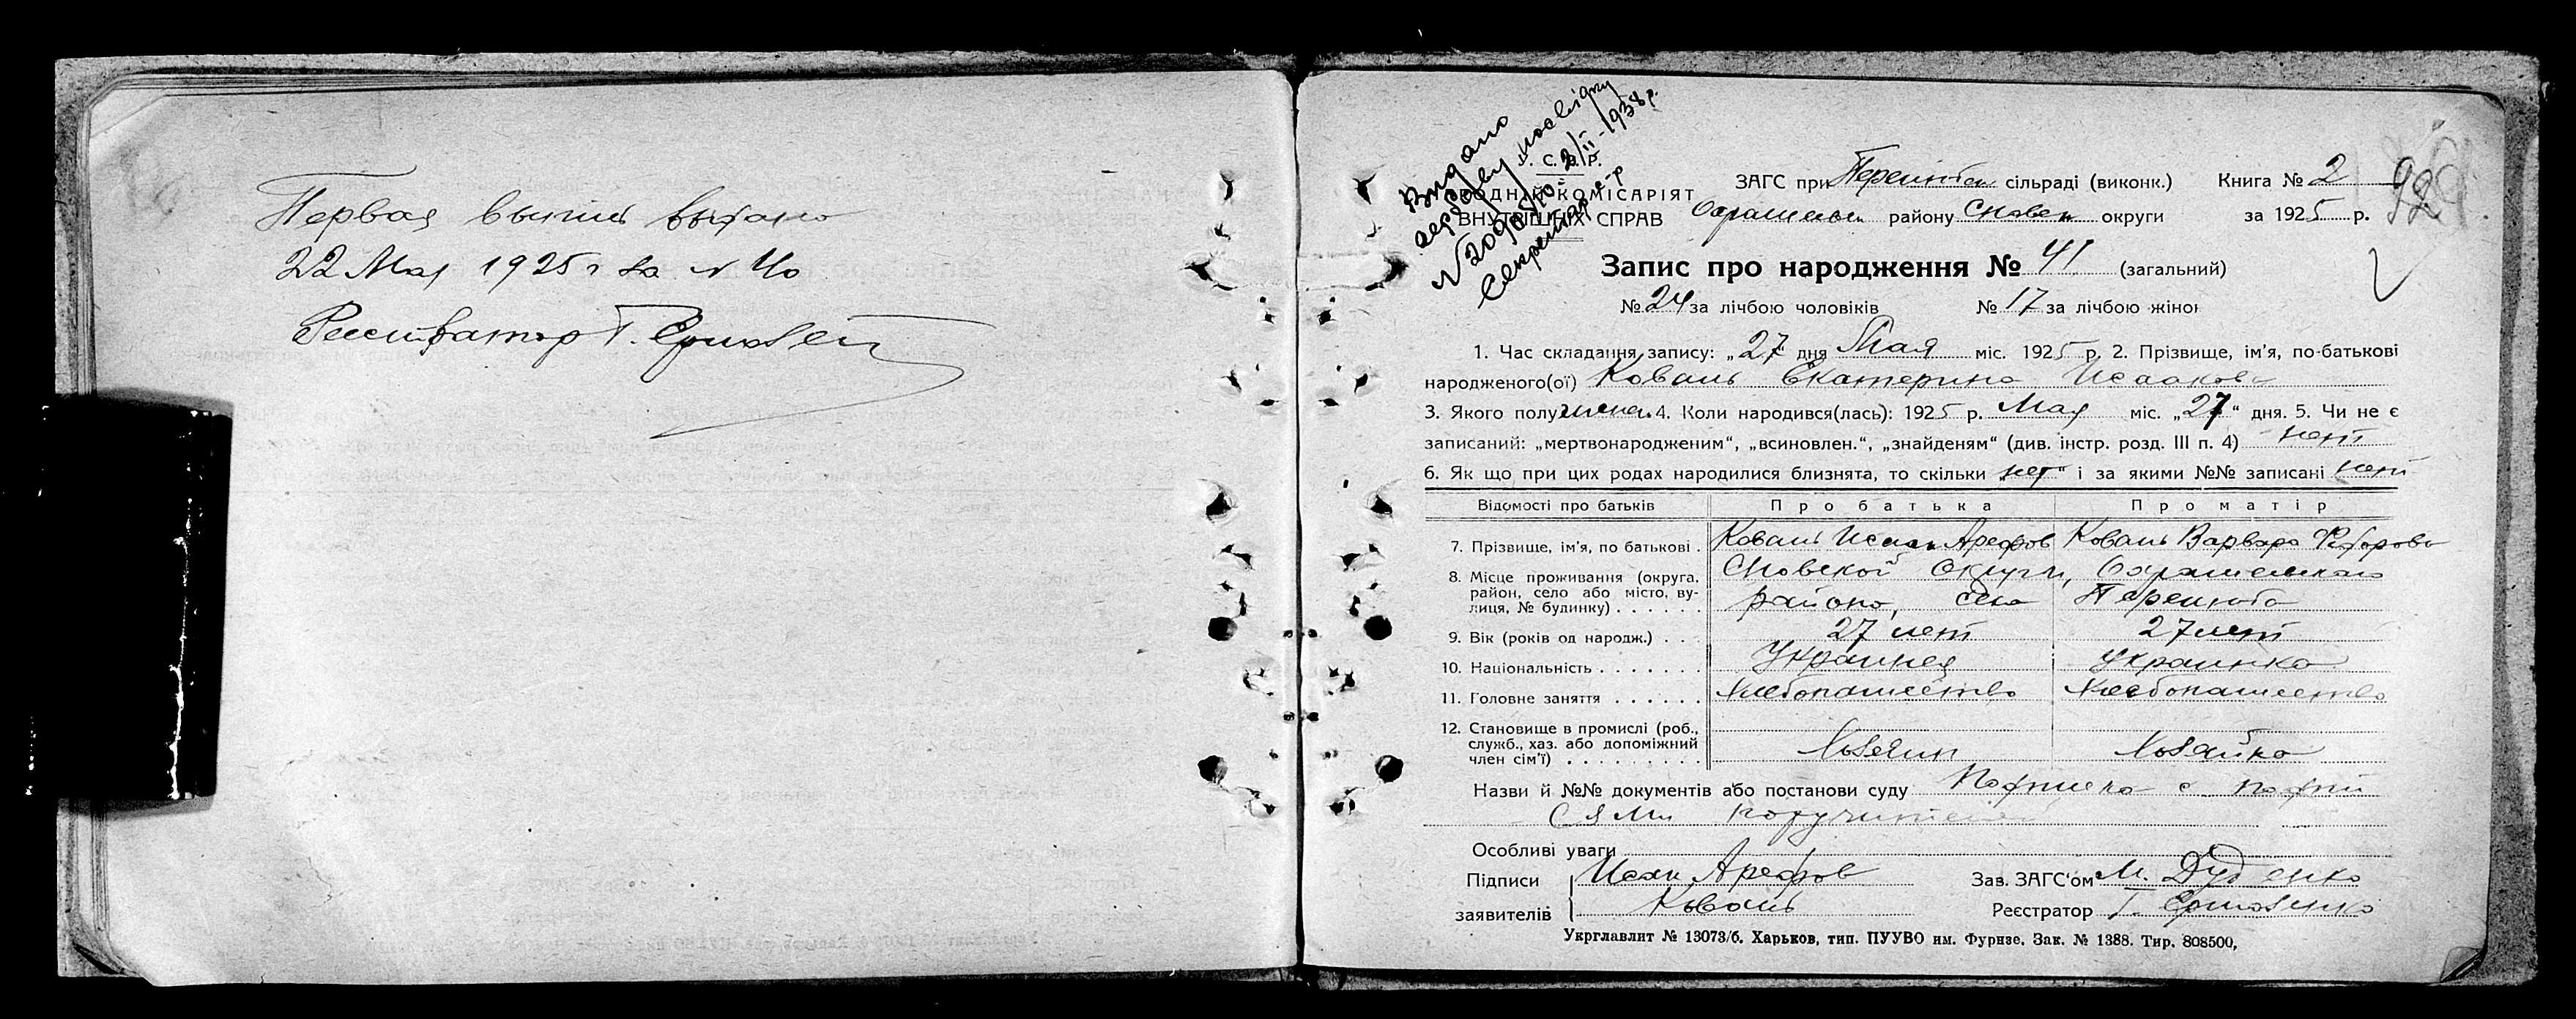 Первая выпись выдана
22 Мая 1925 г за № 40
Регистратор Т. Ермоленко
Видано
дублікат
№ 2/II-1938 р.
Секретар с-р
У. С. Р. Р.
НАРОДНИЙ КОМІСАРІЯТ
ВНУТРІШНІХ СПРАВ
ЗАГС при Перелюбск сільраді (виконк.) Книга № 2
району Сновск округи за 1925 р.
92
Запис про народження № 41 (загальний)
№ 24 за лічбою чоловіків № 17 за лічбою жінок
1. Час складання запису: „27“ дня Мая міс. 1925 р. 2. Прізвище, ім'я, по-батькові
народженого(ої) Коваль Екатерина Исаакова
3. Якого полу женск. 4. Коли народився(лась): 1925 р. Мая міс. „27“ дня. 5. Чи не є
записаний: „мертвонародженим“, „всиновлен.“, „знайденям“ (див. інстр. розд. III п. 4) нет
6. Як що при цих родах народилися близнята, то скільки „нет“ і за якими №№ записані нет
Відомості про батьків Про батька Про матір
7. Прізвище, ім'я, по батькові . Коваль Исаак Арефов Коваль Варвара Федорова
8. Місце проживання (округа, Сновской округи,
район, село або місто, ву- района, село Перелюба
лиця, № будинку) . . . . . .
9. Вік (років од народж.) . . . 27 лет 27 лет
10. Національність . . . . . . . Украинец украинка
11. Головне заняття . . . . . . Хлебопашество Хлебопашество
12. Становище в промислі (роб.,
служб., хаз. або допоміжний Хозяин Хозяйка
член сім'ї) . . . . . . . . .
Назви й №№ документів або постанови суду Подписка с подпи
сями поручителей
Особливі уваги
Підписи Исак Арефов Зав. ЗАГС'ом М. Дуденко
заявителів Коваль Реєстратор Т. Ермоленко
Укрглавлит № 13073/б. Харьков, тип. ПУУВО им. Фрунзе. Зак. № 1388. Тир. 808500,